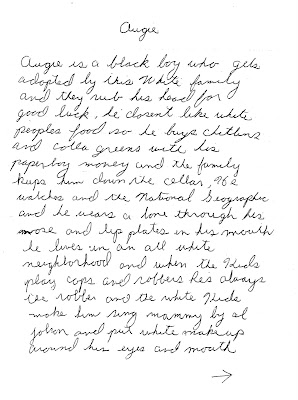 Augie
Augie is a black boy who gets
adopted by this White family
and they rub his head for
good luck, he doesnt like white
peoples food so he buys chitlins
and colla greens with his
paperboy money and the family
keeps him down the cellar, he
watches and the National Geographic
and he wears a bone through his
nose and lip plates in his mouth
he lives in an all white
neighborhood and when the kids
play cops and robbers hes always
the robber and the white kids
make him sing mammy by al
jolson and put white makeup
around his eyes and mouth
→